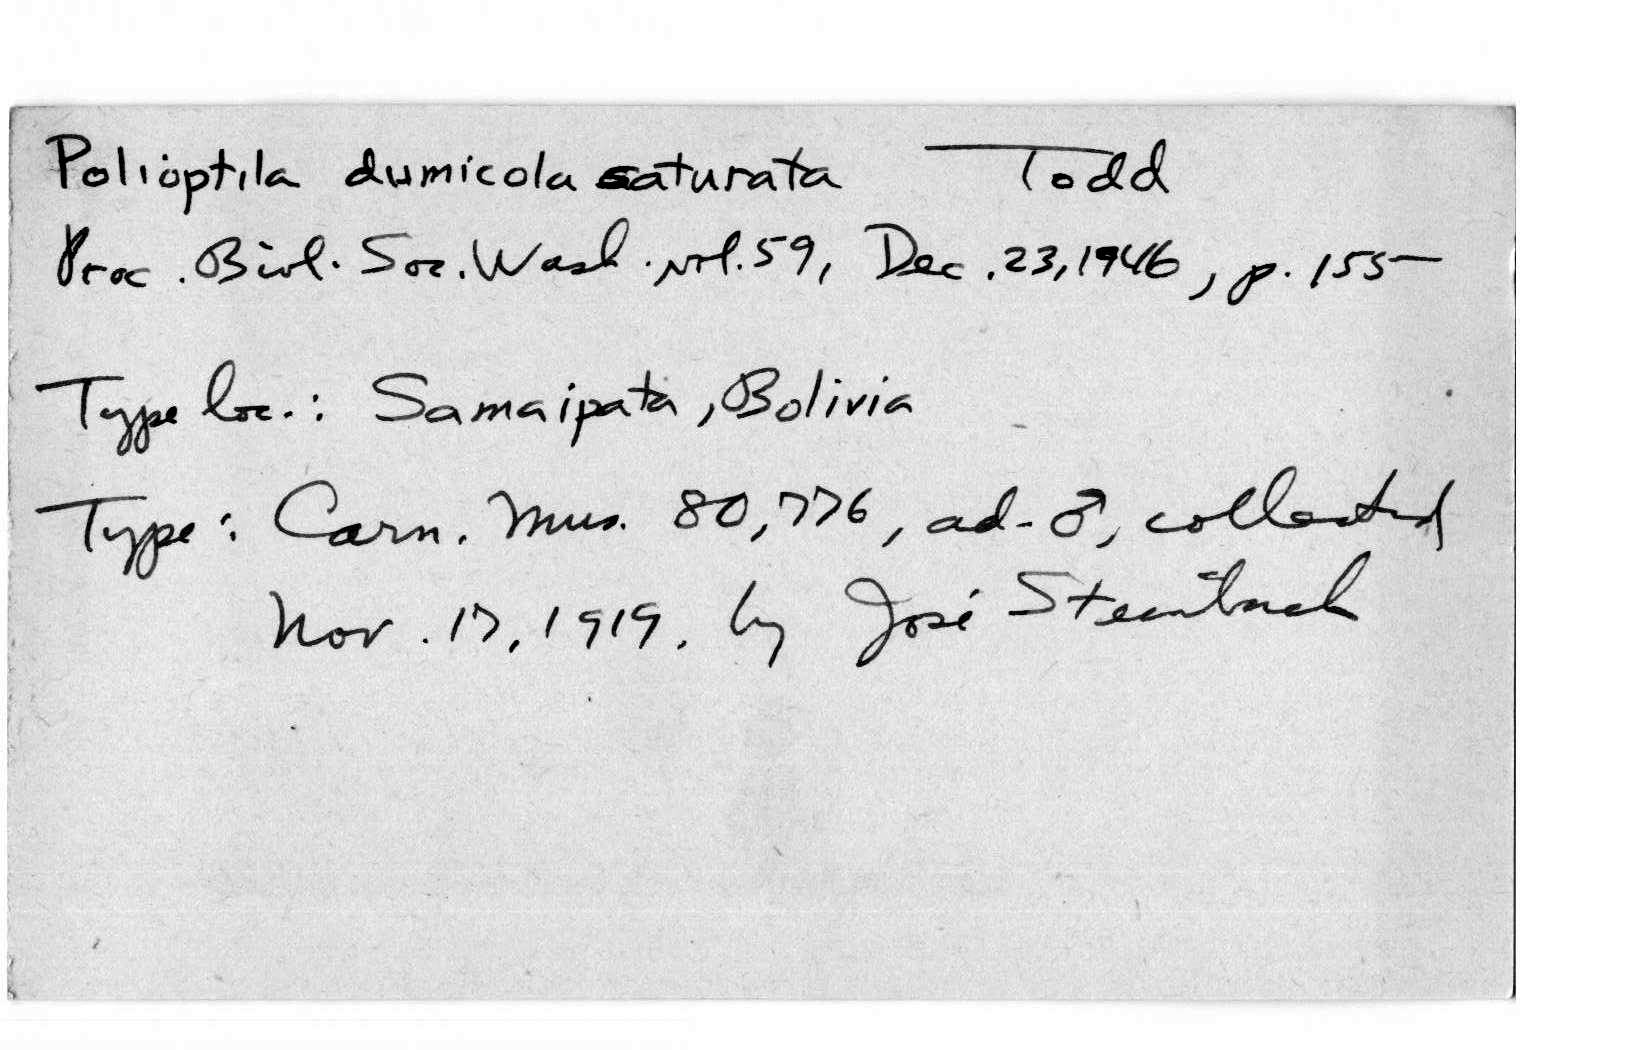 Polioptila dumicola saturata Todd
Proc. Biol. Soc. Wash. vol. 59, Dec. 23, 1946, p. 155
Type loc.: Samaipata, Bolivia
Type: Carn. Mus. 80,776, ad. ♂, collected
Nov. 17, 1919, by José Steinbach